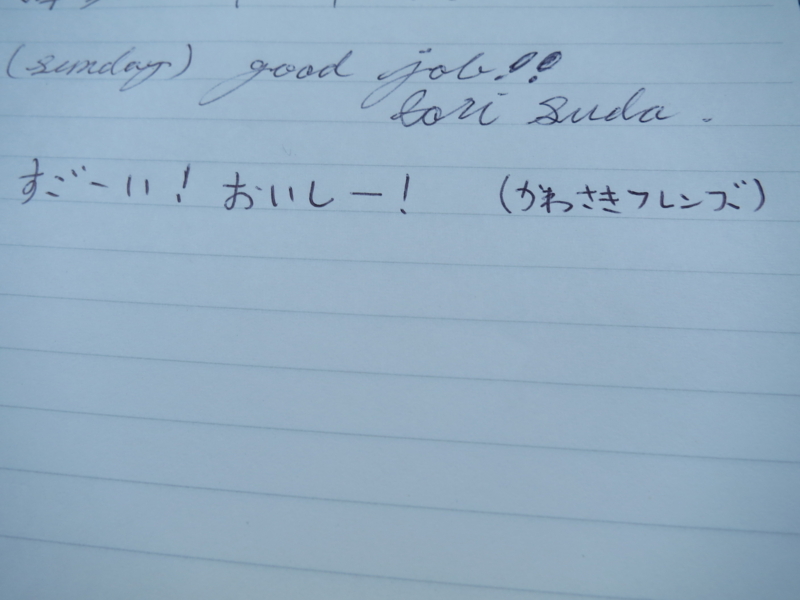 (sunday) good job!!
tori suda.
すごーい! おいしー! (かわさきフレンズ)